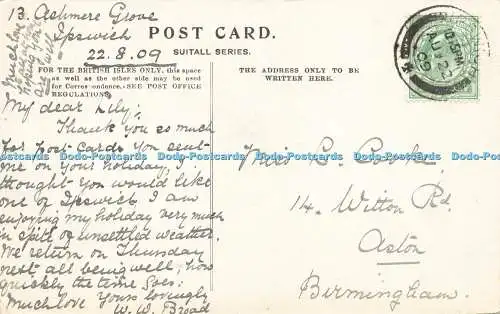 13. Ashmere Grove
Ipswich
22.8.09
POST CARD.
SUITALL SERIES.
FOR THE BRITISH ISLES ONLY, this space
as well as the other side may be used
for Correspondence.—SEE POST OFFICE
REGULATIONS.
THE ADDRESS ONLY TO BE
WRITTEN HERE.
My dear Lily;
Thank you so much
for Post Cards you sent
me on your holiday, I
thought you would like
one of Ipswich. I am
enjoying my holiday very much
in spite of unsettled weather.
We return on Thursday
next all being well, how
quickly the time goes:
Much love Yours lovingly
W. W. Broad
Much love
hoping you
are well
Miss L. Cook.
14. Witton Rd.
Aston
Birmingham.
AU 22
09
Dodo-Postcards Dodo-Postcards Dodo-Postcards Dodo-Postcards Dodo-Postcards Dodo-Postcards